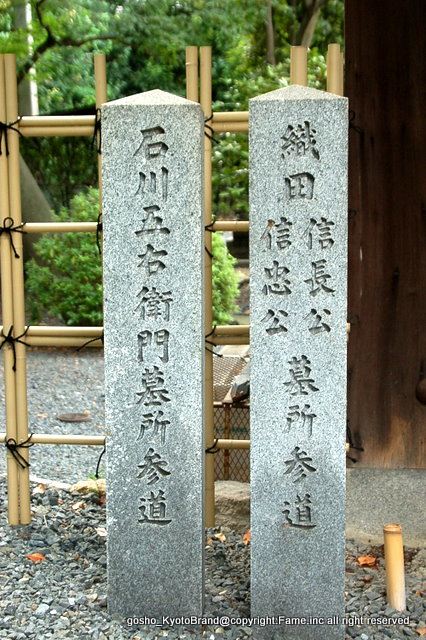 織田
信長公
信忠公
墓所参道
石川五右衛門墓所参道
gosho_KyotoBrand@copyright:Fame.inc all right reserved